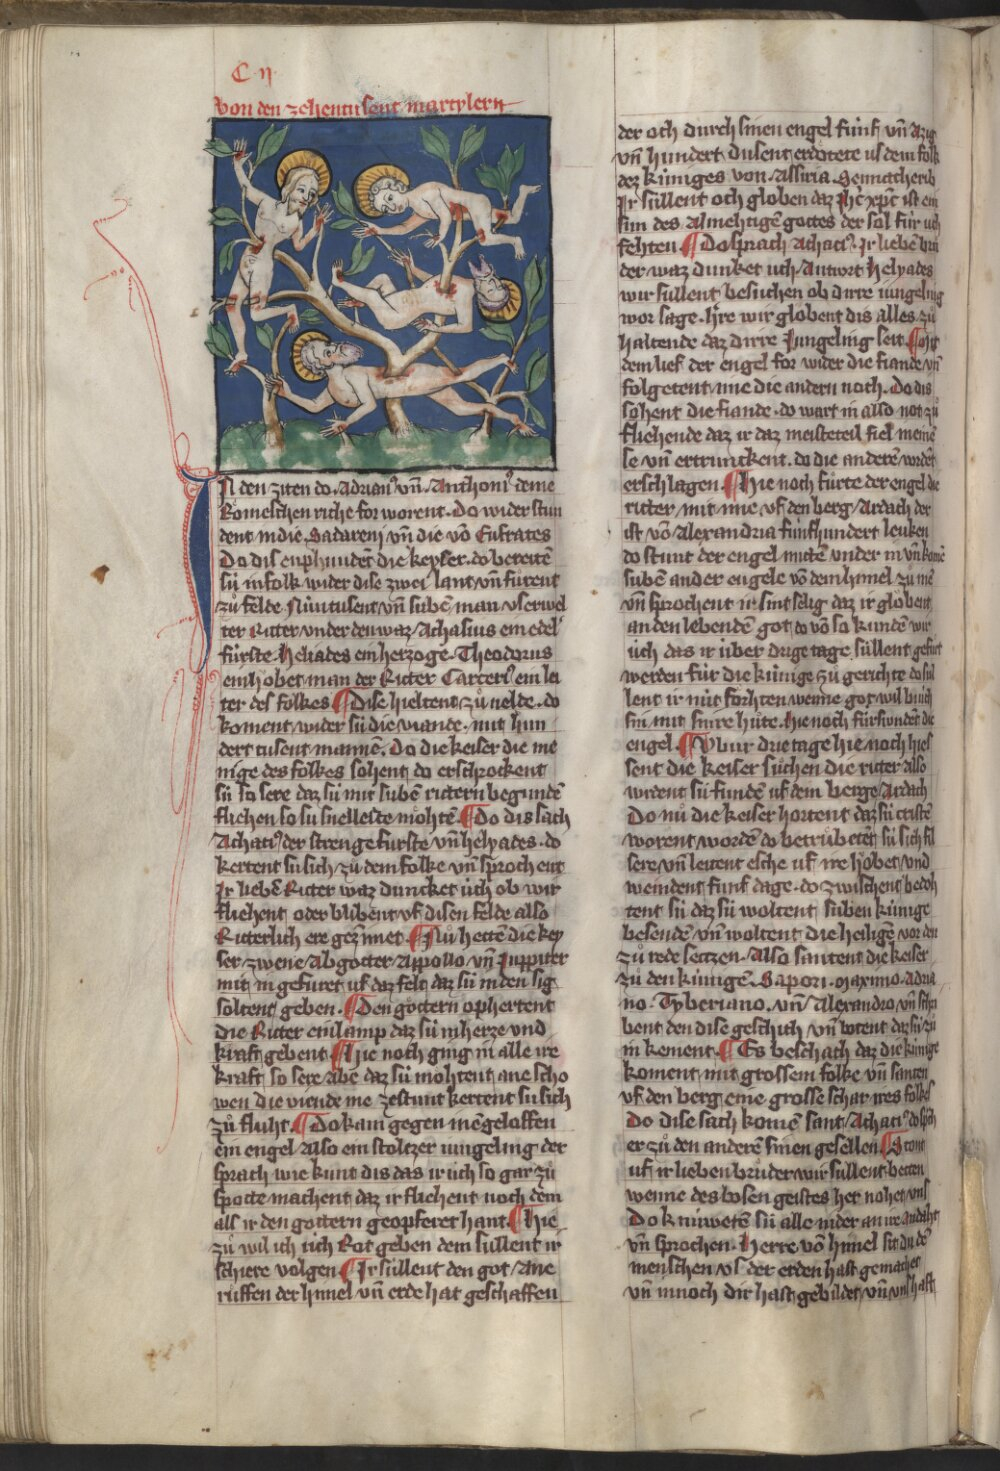 C ij
von den zehentusent martylern
IN den ziten do Adrianꝰ vn̄ Anthoniꝰ deme
Romeschen riche for worent. Do wider stun
dent in die Gadarenj vn̄ die vō Eufrates
Do dis enphundēt die keyser. do bereitēt
sü ir folk wider dise zwei lant vn̄ fůrent
zů felde Nüntusent vn̄ sübē man vserwel
ter Ritter vnder den waz Achasius ein edelꝰ
fürste. Heliades ein herzoge. Theodorus
ein hobetman der Ritter Carceriꝰ ein lei
ter des folkes ¶ Dise hieltent zů uelde. do
koment wider sü die viande. mit hun
dert tusent mannē. Do die keiser die me
nige des folkes sohent do erschrockent
sü so sere daz sü mit subē rittern begundē
fliehen so sü snelleste mohtē. ¶ Do dis sach
Achatiꝰ der strenge furste vn̄ helyades. do
kertent sü sich zů dem folke vn̄ sprochent
Ir liebē Ritter waz duncket üch ob wir
fliehent oder blibent vf disen felde also
Ritterlich ere gezimet ¶ Nů hetten die key
ser zwene Abgötter Appollo vn̄ Juppiter
mit in gefuret uf daz felt daz sü in den sig
soltent geben. ¶ Den göttern ophertent
die Ritter ein lamp daz sü in herze vnd
kraft gebent ¶ Hie noch ging in alle ire
kraft so sere abe daz sü mohtent ane scho
wen die viende me zestunt kertent sü sich
zů fluht. ¶ Do kam gegen in ēgeloffen
ein engel also ein stoltzer iungeling der
sprach wie kunt dis das ir üch so gar zů
spotte machent daz ir fliehent noch dem
als ir den göttern geopferet hant ¶ Hie
zů wil ich üch Rot geben dem süllent ir
schiere volgen ¶ Ir süllent den got ane
ruffen der himel vn̄ erde hat geschaffen
der och durch sinen engel fünf vn̄
vn̄ hundert dusent erdötete us dem folk
dez küniges von Assiria Sennacherib
Ir süllent och globen daz ihc̄ xpc̄ ist ein
sun des almehtigē gottes der sol für üch
fehten ¶ Do sprach Achatiꝰ. Ir liebē brü
der waz dunket üch Antwort helyades
wir süllent besuchen ob dirre iungeling
wor sage. hre wir globent dis alles. zů
haltende daz dirre Jungeling seit. ¶ Noch
dem lief der engel for wider die fiande vn̄
folgetent ime die andern noch. Do dis
sohent die fiande. do wart in also not zů
fliehende daz ir daz meiste teil fiel in einē
se vn̄ ertrunckent. do die anderē wordēt
erschlagen. ¶ Hie noch fürte der engel die
ritter mit ime vf den berg Ardach der
ist vō Alexandria fünfhundert leuken
do stunt der engel mittē vnder in vn̄ komē
subē ander engele vō dem himel zů inē
vn̄ sprochent ir sint selig daz ir globent
an den lebendē got do vō so kundē wir
üch das ir über drige tage süllent gefurt
werden für die künige zů gerichte do sül
lent ir nüt förhten wenne got wil bi üch
sin mit sinre hüte. hie noch fürswundēt die
engel. ¶ Vbur drie tage hie noch hies
sent die keiser sůchen die ritter also
wrdent sü fundē uf dem berge Ardach
Do nů die keiser hortent daz sü cristē
worent wordē do betrübetēt sü sich fil
sere vn̄ leitent esche uf ire höbet vnd
weindent fünf dage. do zwischent bedoh
tent sü daz sü woltent süben künige
besendē vn̄ woltent die heiligē vor den
zů rede setzen. Also santent die keiser
zů den künigē Sapori. Maximo. Adria
no. Tyberiano. vn̄ Alexandro vn̄ schri
bent den dise geschich vn̄ botent daz sü zů
in kement. ¶ Es beschach daz die künige
koment mit grossem folke vn̄ santen
vf den berg eine grosse schar ires folkes
Do dise sach komē sant Achatiꝰ do sprch
er zů den anderē sinen gesellen ¶ Stont
uf ir lieben brůder wir süllent betten
wenne des bosen geistes her nohet vns
Do knüwetē sü alle nider an ire andaht
vn̄ sprochen. Herre vō himel sit du dē
menschen vs der erden hast gemachet
vn̄ in noch dir hast gebildet vn̄ vns hast